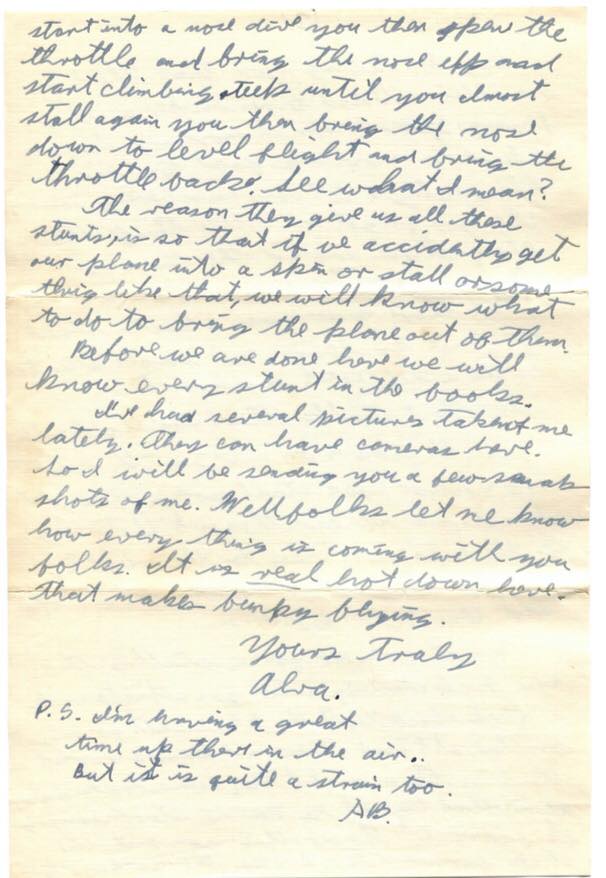 start into a nose dive you then open the
throttle and bring the nose upp and
start climbing steep until you almost
stall again you then bring the nose
down to level flight and bring the
throttle back. See what I mean?
The reason they give us all these
stunts, is so that if we accidently get
our plane into a spin or stall or some
thing like that, we will know what
to do to bring the plane out of them.
Before we are done here we will
know every stunt in the books.
I've had several pictures taken of me
lately. They can have cameras here.
So I will be sending you a few snap
shots of me. Well folks let me know
how every thing is coming with you
folks. It is real hot down here.
That makes bumpy flying.
Yours Truly
Alva.
P.S. I'm having a great
time up there in the air..
But it is quite a strain too.
AB.